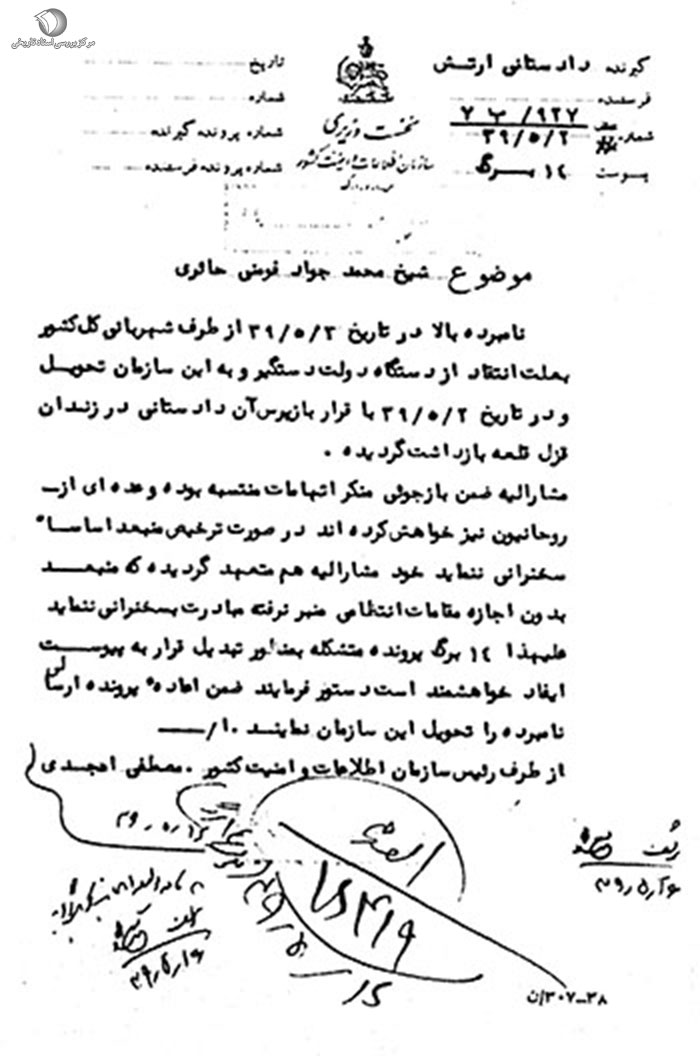 مرکز بررسی اسناد تاریخی
گیرنده دادستانی ارتش
فرستنده
شماره ۹۲۷/ ب ۷
۳۹/۵/۲
پیوست ۱٤ برگ
نخست وزیری
سازمان اطلاعات و امنیت کشور
س.ا.و.ا.ک
تاریخ
شماره
شماره پرونده گیرنده
شماره پرونده فرستنده
موضوع شیخ محمد جواد قومنی حائری
نامبرده بالا در تاریخ ۳۹/۵/۲ از طرف شهربانی کل کشور
بعلت انتقاد از دستگاه دولت دستگیر و به این سازمان تحویل
و در تاریخ ۳۹/۵/۲ با قرار بازپرس آن دادستانی در زندان
قزل قلعه بازداشت گردیده .
مشارالیه ضمن بازجوئی منکر اتهامات منتسبه بوده و عده ای از
روحانیون نیز خواهش کرده اند در صورت ترخیص منبعد اساسا"
سخنرانی ننماید خود مشارالیه هم متعهد گردیده که منبعد
بدون اجازه مقامات انتظامی منبر نرفته مبادرت بسخنرانی ننماید
علیهذا ۱٤ برگ پرونده متشکله بمنظور تبدیل قرار به پیوست
ایفاد خواهشمند است دستور فرمایند ضمن اعاده پرونده ارسالی
نامبرده را تحویل این سازمان نمایند .ا/
از طرف رئیس سازمان اطلاعات و امنیت کشور . مصطفی امجدی
۳۹/۵/۱۵
۳۰۷-۳۸/ن